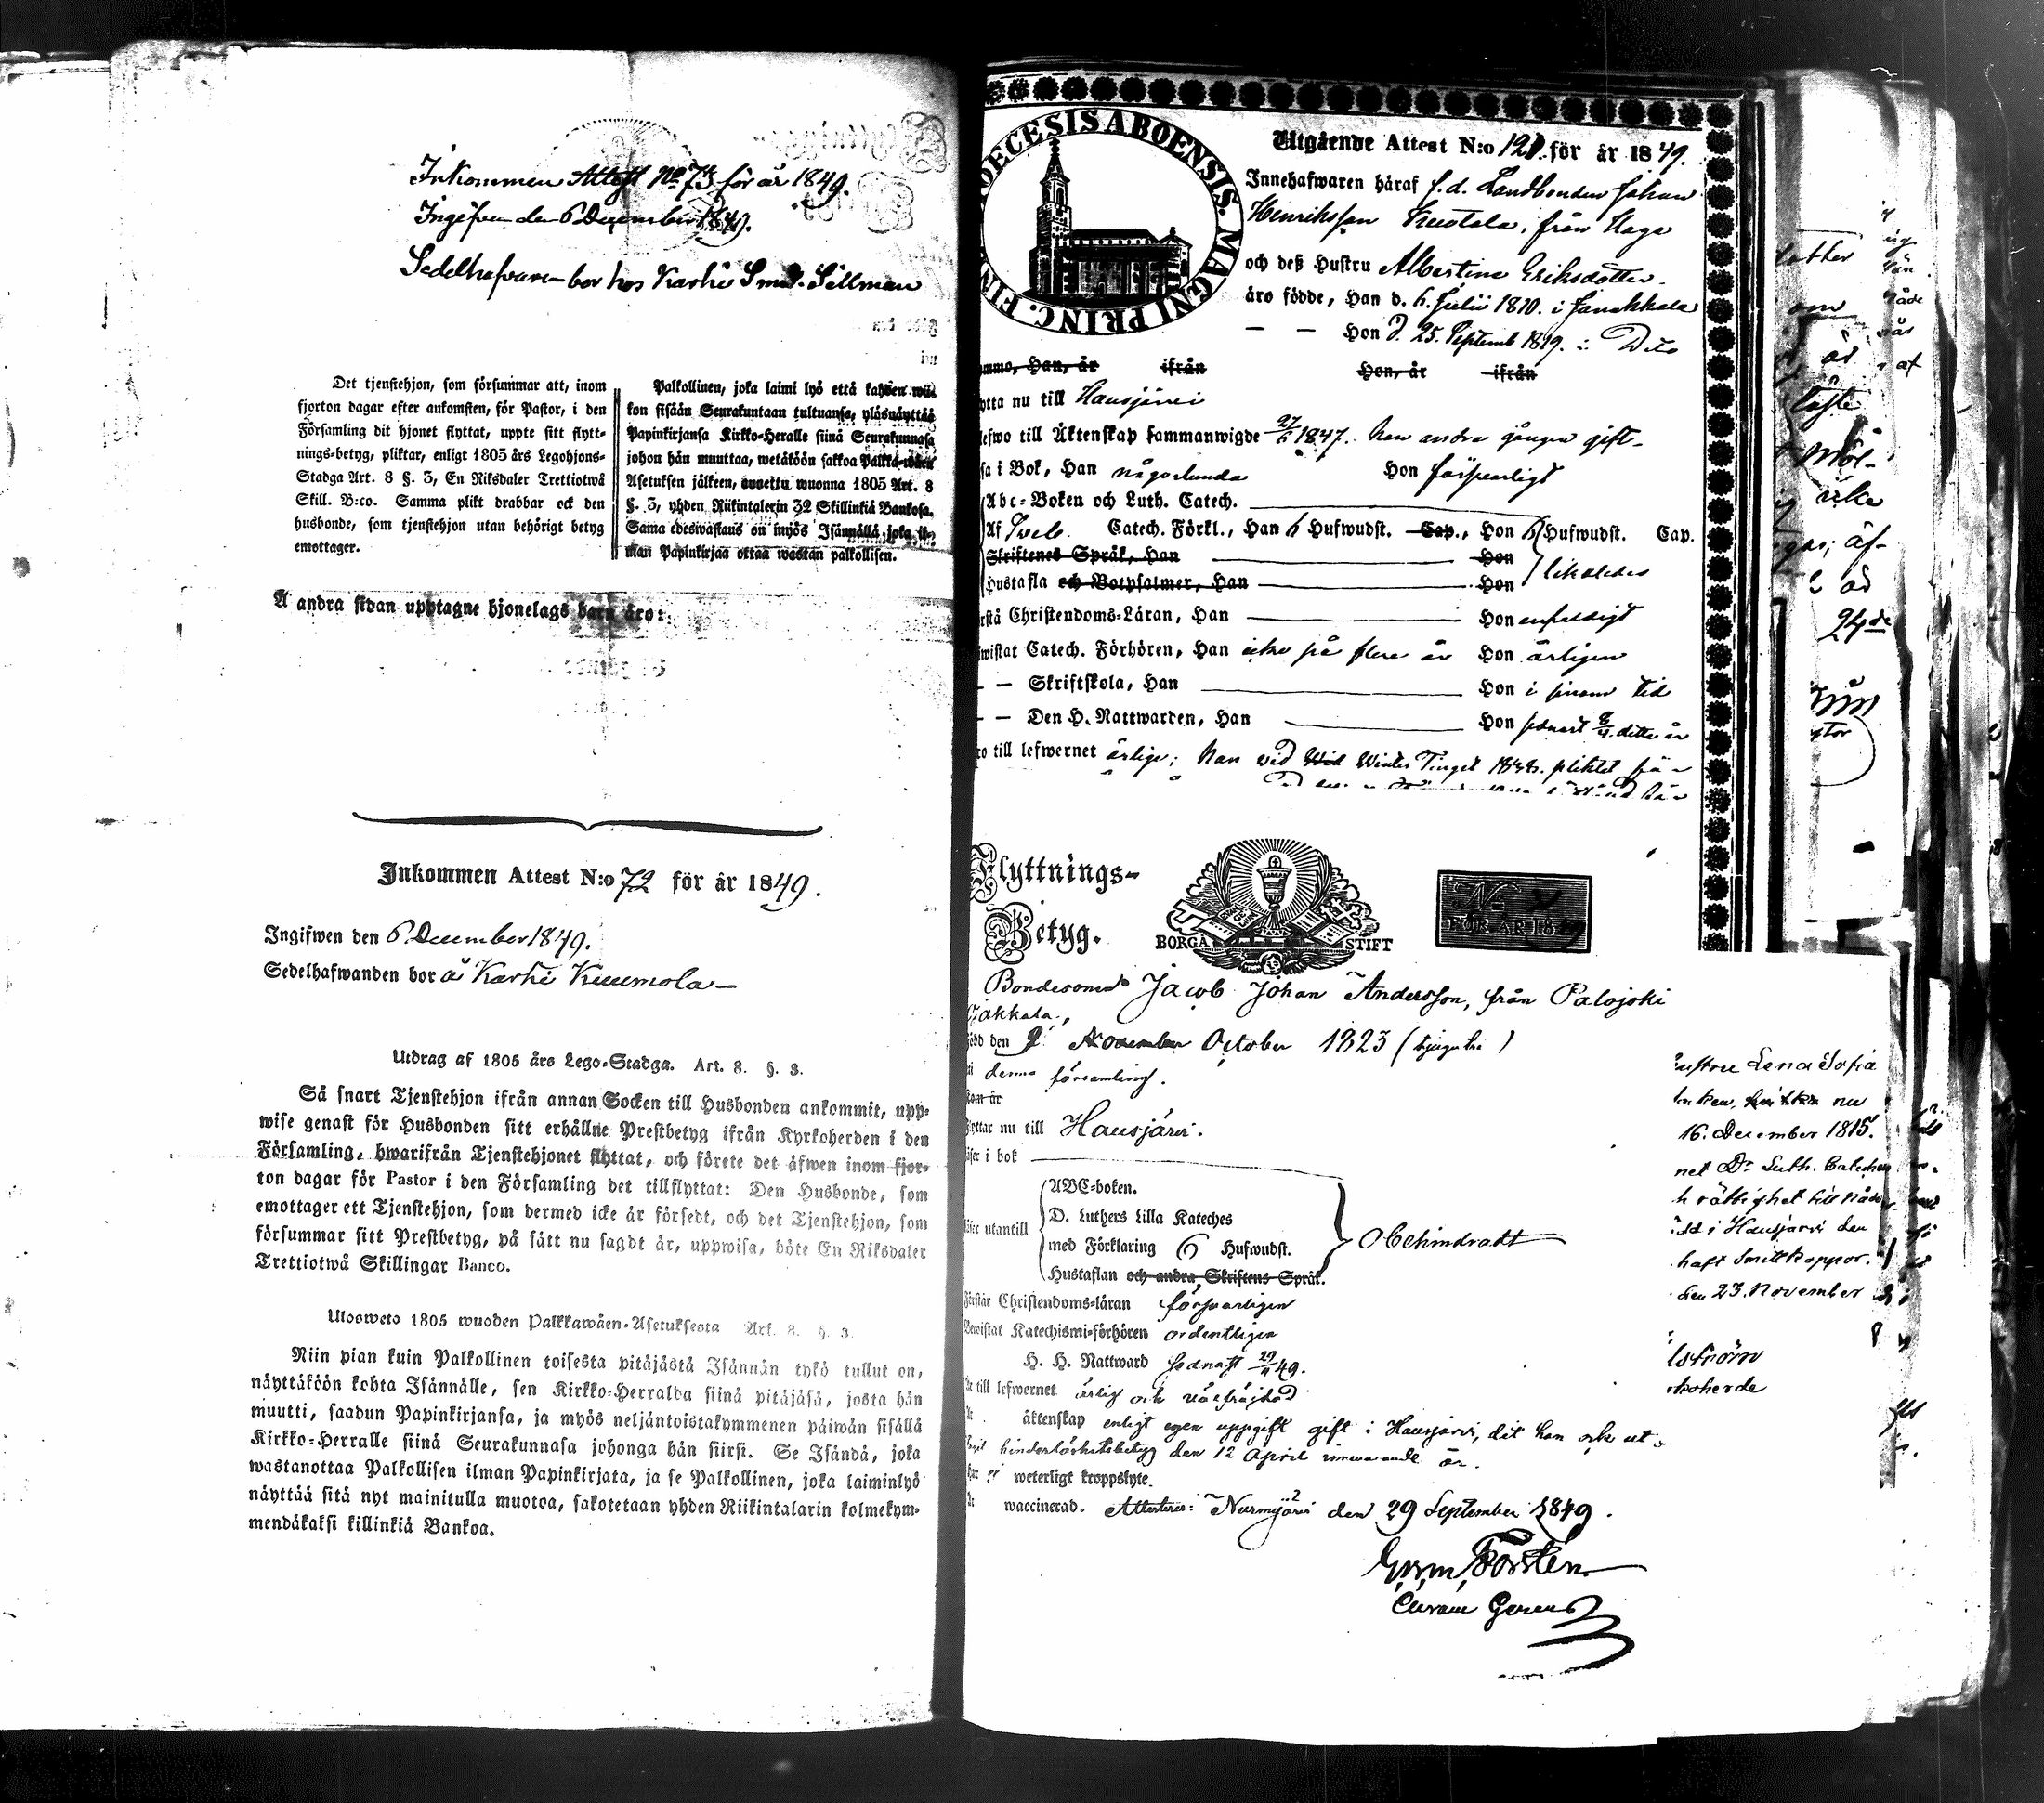 Inkommen Attest No 73 för år 1849.
Ingifven den 6 December 1849.
Sedelhafvaren bor hos Karhi Smed. Sillman
Det tjenstehjon, som försummar att, inom
fjorton dagar efter ankomsten, för Pastor, i den
Församling dit hjonet flyttat, uppte sitt flytt-
nings-betyg, pliktar, enligt 1805 års Legohjons-
Stadga Art. 8 §. 3, En Riksdaler Trettiotwå
Skill. B:co. Samma plikt drabbar ock den
husbonde, som tjenstehjon utan behörigt betyg
emottager.
Palkollinen, joka laimi lyö että kahden wii-
kon sisään Seurakuntaan tultuansa, ylösnäyttää
Papinkirjansa Kirkko-Heralle siinä Seurakunnasa
johon hän muuttaa, wetäköön sakkoa Palkka-wäen
Asetuksen jälkeen, annettu wuonna 1805 Art. 8
§. 3, yhden Riikintalerin 32 Skillinkiä Bankosa.
Sama edeswastaus on myös Isännällä, joka il-
man Papinkirjaa ottaa wastan palkollisen.
Å andra sidan upptagne hjonelags barn äro:
Inkommen Attest N:o 72 för år 1849.
Ingifwen den 6 December 1849.
Sedelhafwanden bor å Karhi Kuumola
Utdrag af 1805 års Lego-Stadga. Art. 8. §. 3.
Så snart Tjenstehjon ifrån annan Socken till Husbonden ankommit, upp-
wise genast för Husbonden sitt erhållne Prestbetyg ifrån Kyrkoherden i den
Församling, hwarifrån Tjenstehjonet flyttat, och förete det äfwen inom fjor-
ton dagar för Pastor i den Församling det tillflyttat: Den Husbonde, som
emottager ett Tjenstehjon, som dermed icke är försedt, och det Tjenstehjon, som
försummar sitt Prestbetyg, på sätt nu sagdt är, uppwisa, böte En Riksdaler
Trettiotwå Skillingar Banco.
Ulosweto 1805 wuoden Palkkawäen-Asetuksesta Art. 8. §. 3.
Niin pian kuin Palkollinen toisesta pitäjästä Isännän tykö tullut on,
näyttäköön kohta Isännälle, sen Kirkko-Herralda siinä pitäjäsä, josta hän
muutti, saadun Papinkirjansa, ja myös neljäntoistakymmenen päiwän sisällä
Kirkko-Herralle siinä Seurakunnasa johonga hän siirsi. Se Isändä, joka
wastanottaa Palkollisen ilman Papinkirjata, ja se Palkollinen, joka laiminlyö
näyttää sitä nyt mainitulla muotoa, sakotetaan yhden Riikintalarin kolmekym-
mendäkaksi killinkiä Bankoa.
DECESIS ABOENSIS. MAGNI PRINC. FIN
Utgående Attest N:o 121. för år 1849.
Innehafwaren häraf f.d. Landbonden Johan
Henriksson från Haga
och deß Hustru Albertina Eriksdotter.
äro födde, Han d. 6. Julii 1810. i Janakkala
— — Hon d. 25. Septemb 1819. i Dito
ommo, Han, år ifrån Hon, år ifrån
ytta nu till Hausjärvi
efwo till Äktenskap sammanwigde 27/6 1847. han andra gången gift-
sa i Bok, Han någorlunda Hon försvarligt
Abc-Boken och Luth. Catech.
Af Catech. Förkl., Han 6 Hufwudst. Cap., Hon 6 Hufwudst. Cap.
Skriftenes Språk, Han Hon
Hustafla och Botpsalmer, Han Hon likaledes
rstå Christendoms-Läran, Han Hon enfaldigt
wistat Catech. Förhören, Han icke på flere år Hon årligen
— — Skriftskola, Han Hon i sinom tid
— — Den H. Nattwarden, Han Hon senast 8/4 detta år
ro till lefwernet ärlige; han vid Wid Winter Tinget 1848. pliktat
Flyttnings-
Betyg.
BORGÅ STIFT
N:
FÖR ÅR 1849
Bondesonen Jacob Johan Andersson, från Palojoki
född den 9 November October 1823 (tjugutre)
i denna församling.
kom år
flyttar nu till Hausjärvi.
läser i bok
läser utantill
ABC-boken.
D. Luthers Lilla Kateches
med Förklaring 6 Hufwudst.
Hustaflan och andra Skriftens Språk.
Obehindradt
Förstår Christendoms-läran försvarligen
Bewistat Katechismi-förhören ordentligen
H. H. Nattward sednast 29/4 49.
till lefwernet ärlig och välfräjdad
äktenskap enligt egen uppgift gift i Hausjärvi, dit han ock ut-
hinderlöshetsbetyg den 12 April innevarande år.
weterligt kroppslyte.
waccinerad. Attesterar: Nurmijärvi den 29 September 1849.
Forstén
Curam Gerens
Hustru Lena Sofia
nu
16. December 1815.
Dr Luth. Catech
rättighet till
i Hausjärvi den
haft Smittkoppor.
den 23. November